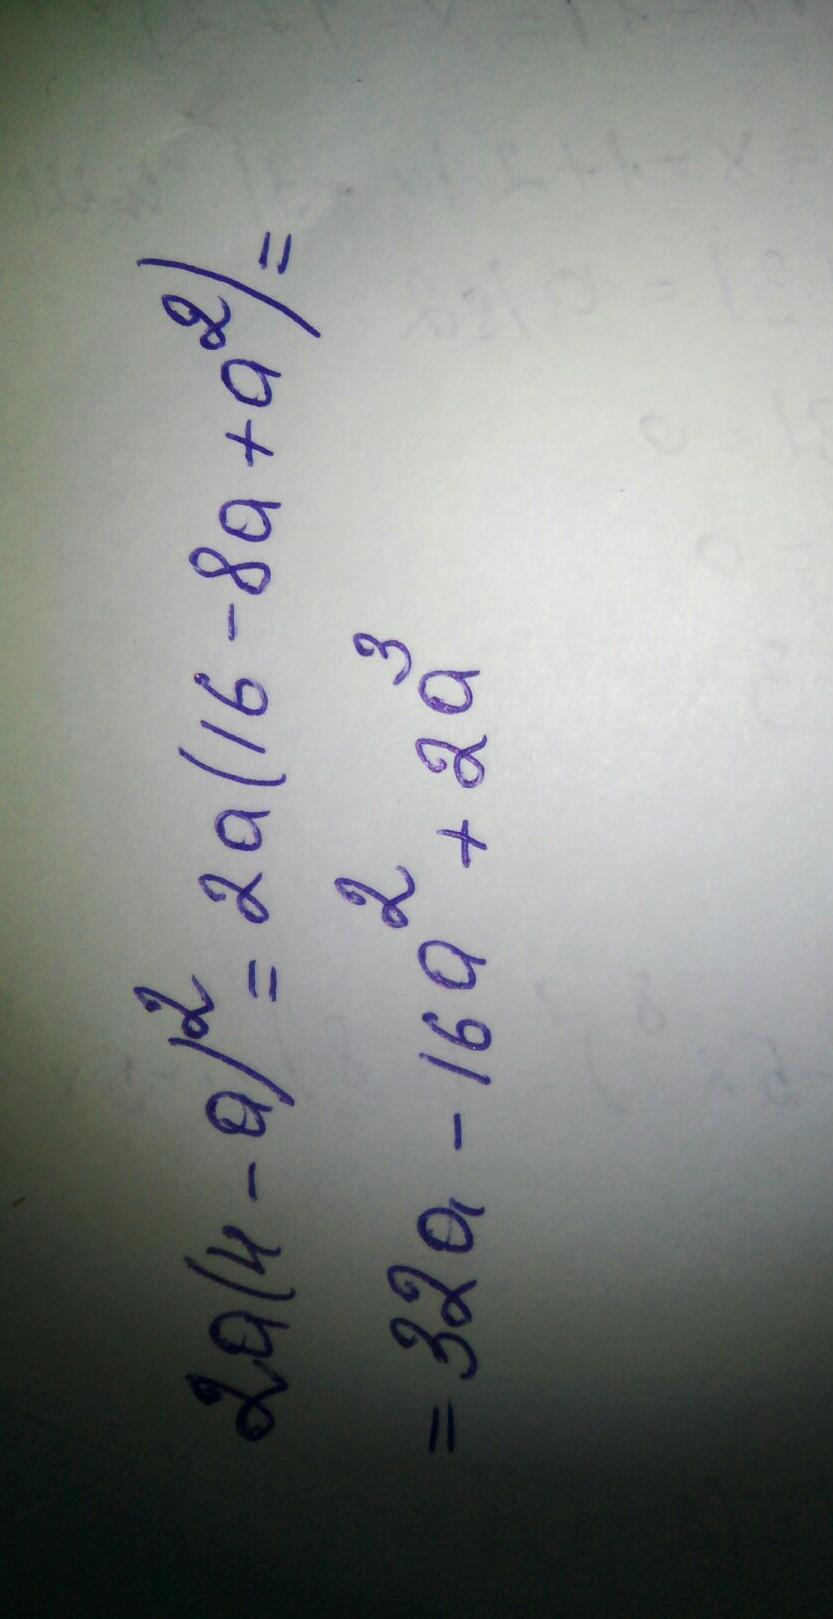 2a(4-a)²=2a(16-8a+a²)=
=32a-16a²+2a³